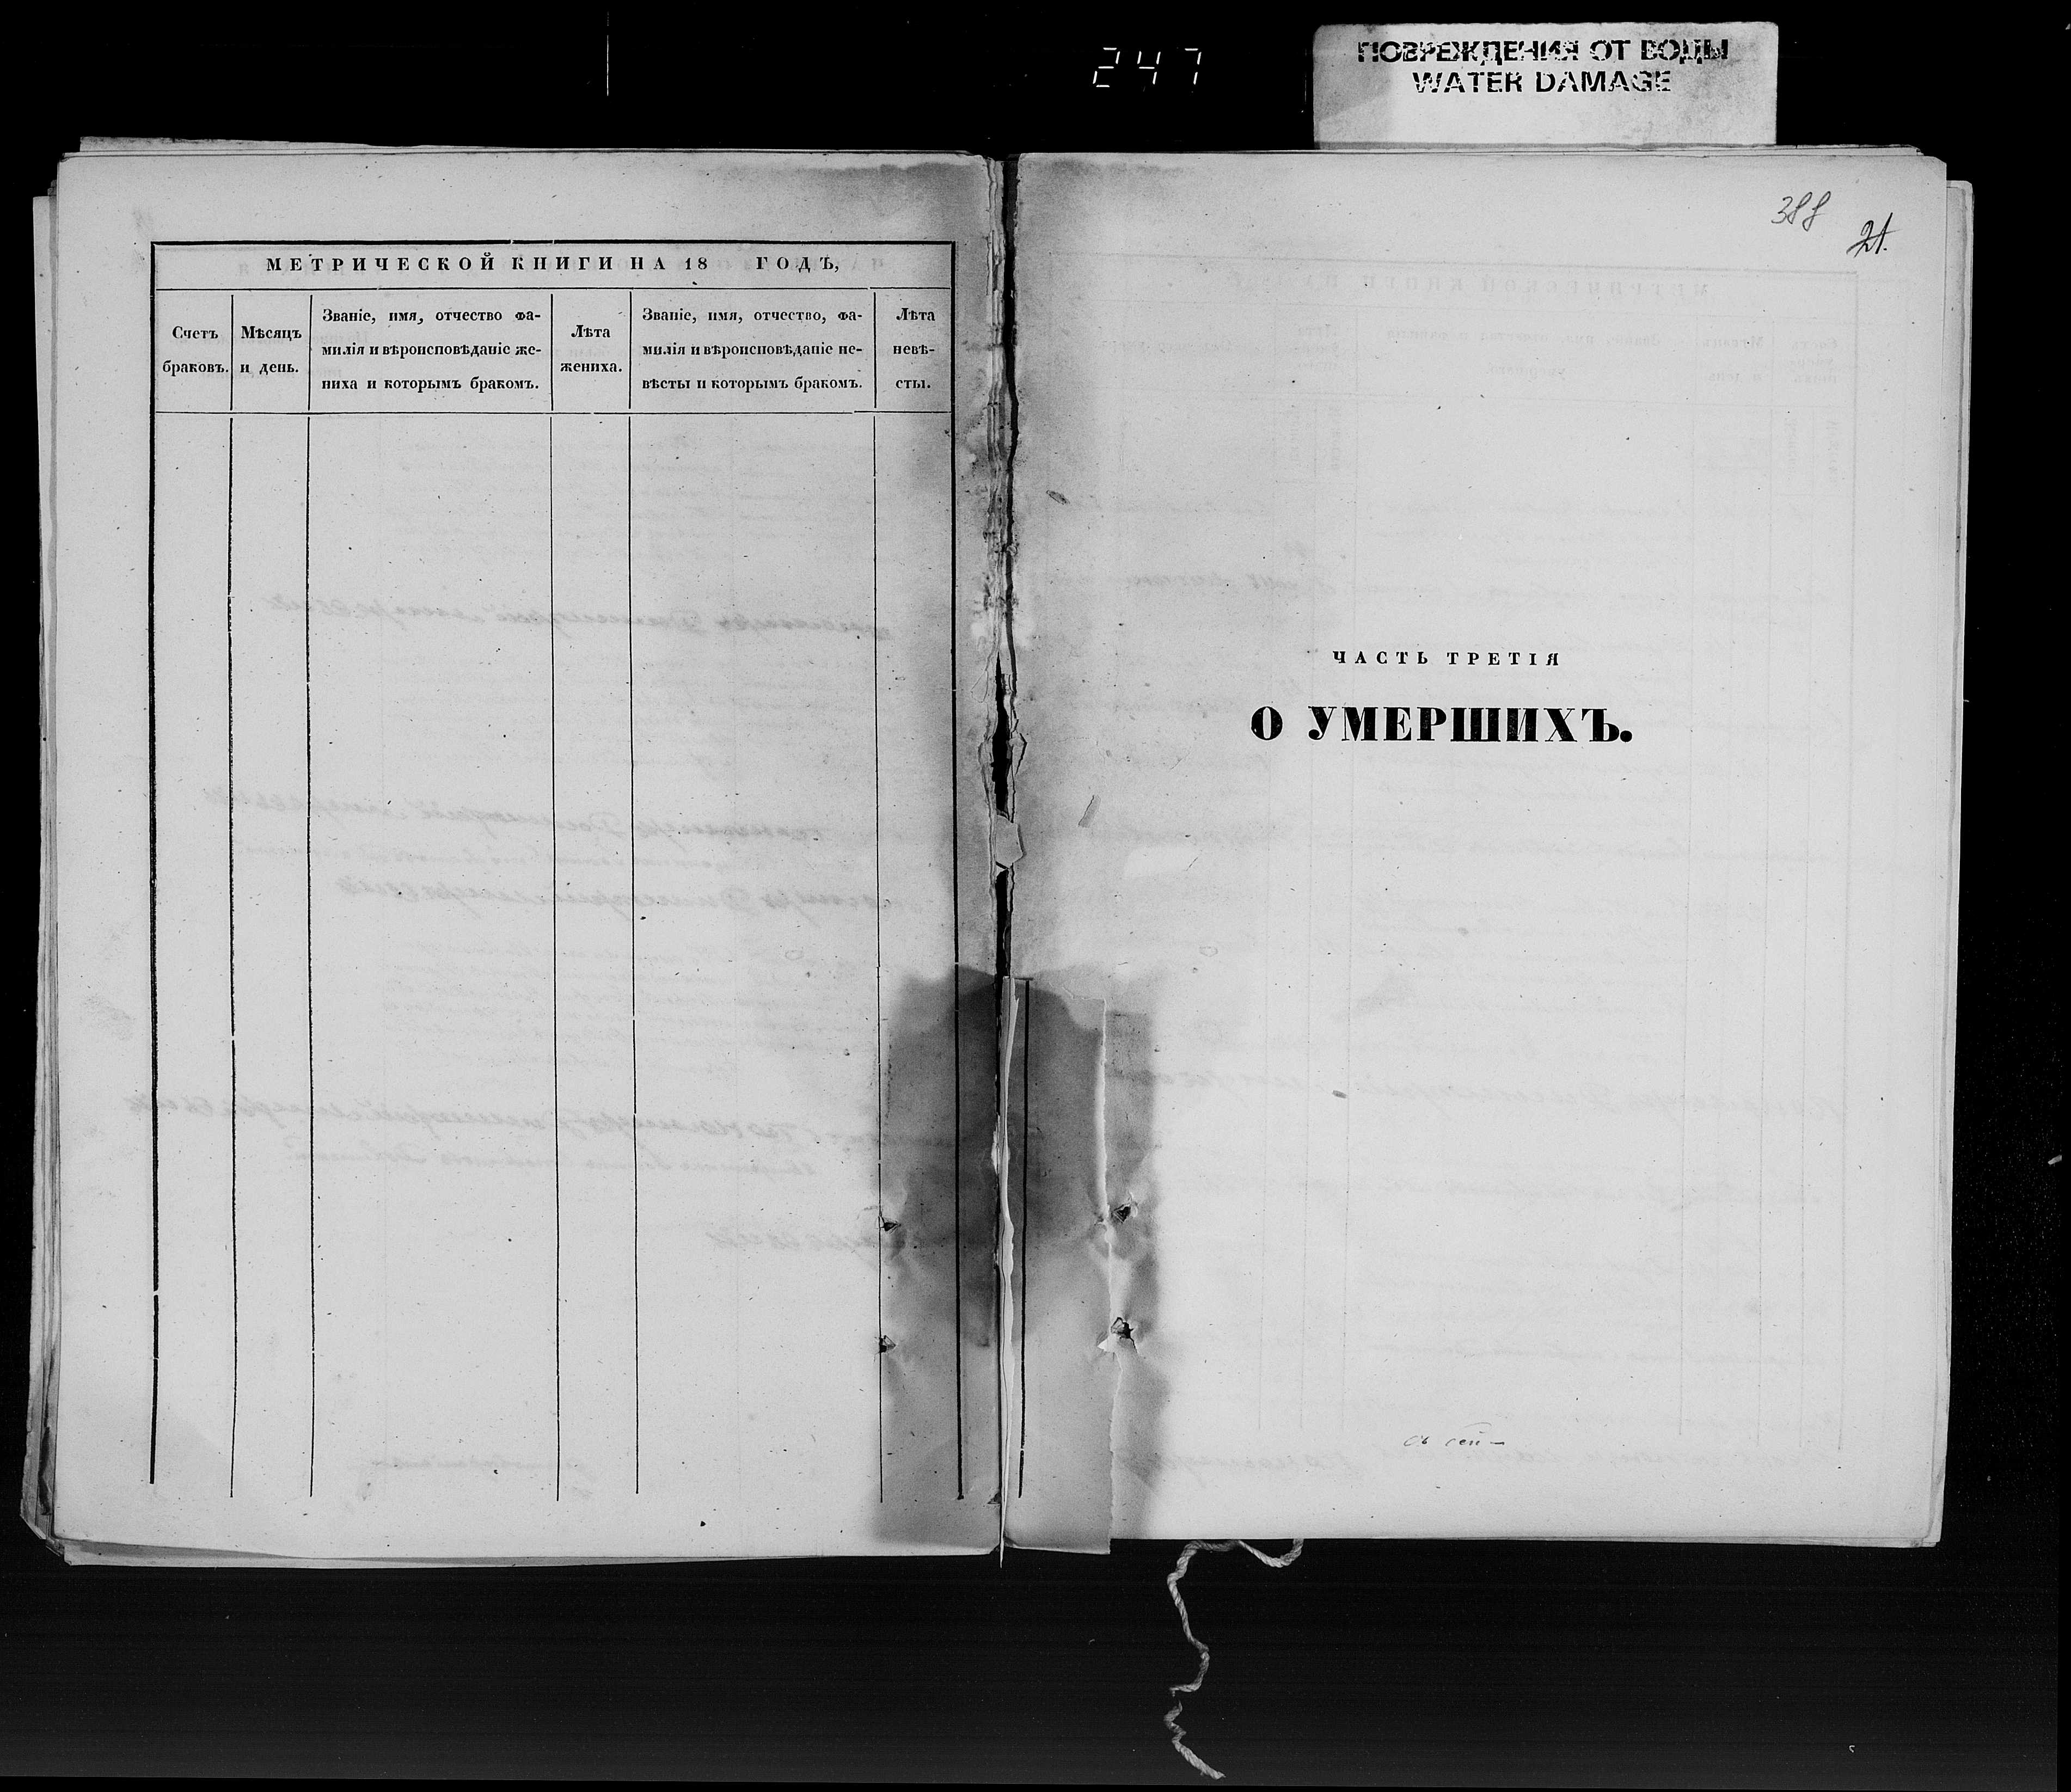 247
ПОВРЕЖДЕНИЯ ОТ ВОДЫ
WATER DAMAGE
МЕТРИЧЕСКОЙ КНИГИ НА 18 ГОДѢ,
Счетъ
браковъ.
Мѣсяцъ
и день.
Званіе, имя, отчество фа-
милія и вѣроисповѣданіе же-
ниха и которымъ бракомъ.
Лѣта
жениха.
Званіе, имя, отчество, фа-
милія и вѣроисповѣданіе не-
вѣсты и которымъ бракомъ.
Лѣта
невѣ-
сты.
388
21.
ЧАСТЬ ТРЕТІЯ
О УМЕРШИХЪ.